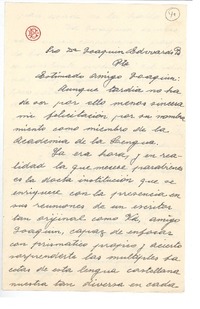 Sr Dn Joaquin Edwards B
Pte
Estimado amigo Joaquin:
Aunque tardia no ha
de ser por ello menos sincera
mi felicitacion, por su nombra
miento como miembro de la
Academia de la Lengua.
Ya era hora, y en rea-
lidad la que merece parabienes
es la docta institución que se
enriquece con la presencia en
sus reuniones de un escritor
tan original como Ud, amigo
Joaquin, capaz de enfocar
con prismatico propio y acierto
sorprendente las multiples fa
cetas de esta lengua castellana
nuestra tan diversa en cada